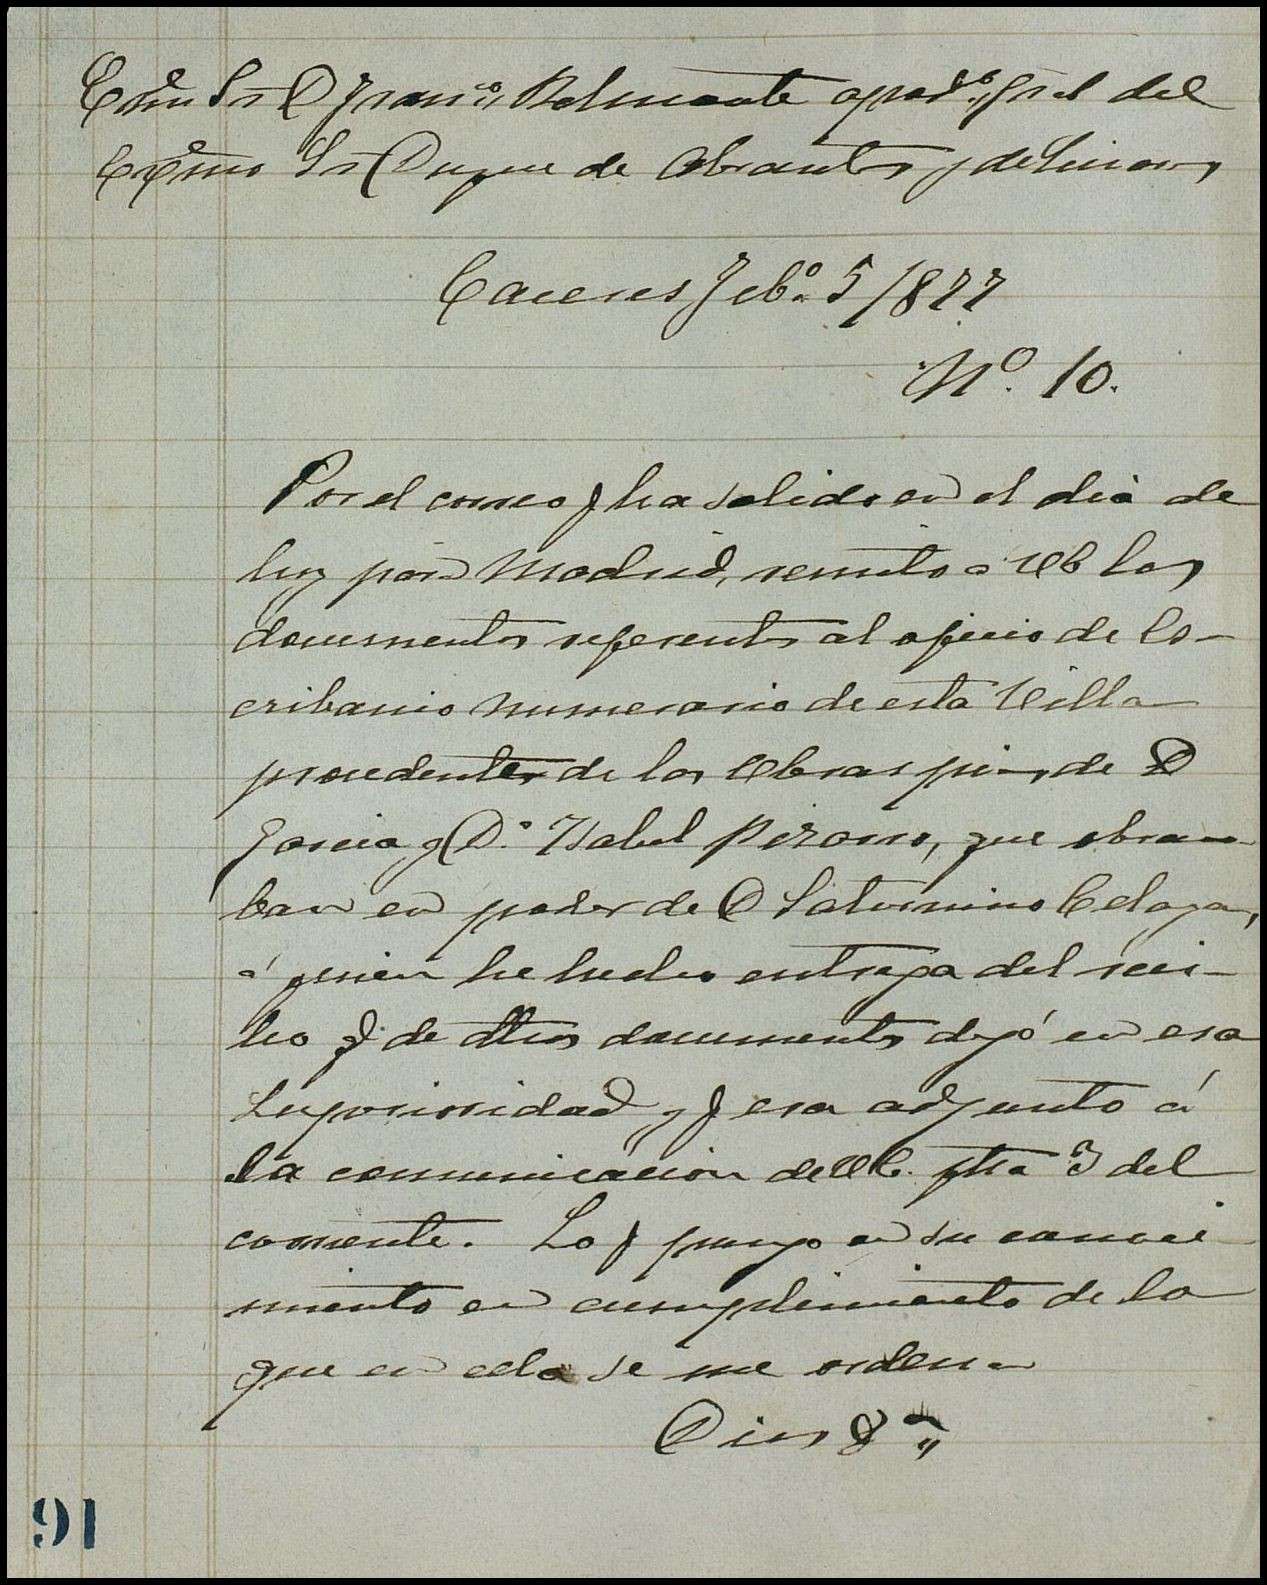 Exmo Sr D Franco Belmonte apodo Gral del
Excmo Sr Duque de Abrantes y de Linares
Caceres Febo 5/877
No. 10.
Por el correo q ha salido en el dia de
hoy para Madrid, remito a VE los
documentos referentes al oficio de Es-
cribanio numerario de esta Villa
procedentes de las Obras pias de D
Garcia y Da Isabel Pizarro, que obra-
ban en poder de D Saturnino Celaya,
á quien he hecho entrega del reci-
bo q de dhos documentos dejó en esa
Superioridad, y q era adjunto á
la comunicacion de VE. fha 3 del
corriente. Lo q pongo en su conoci
miento en cumplimiento de lo
que en ella se me ordena
Dios &a
91